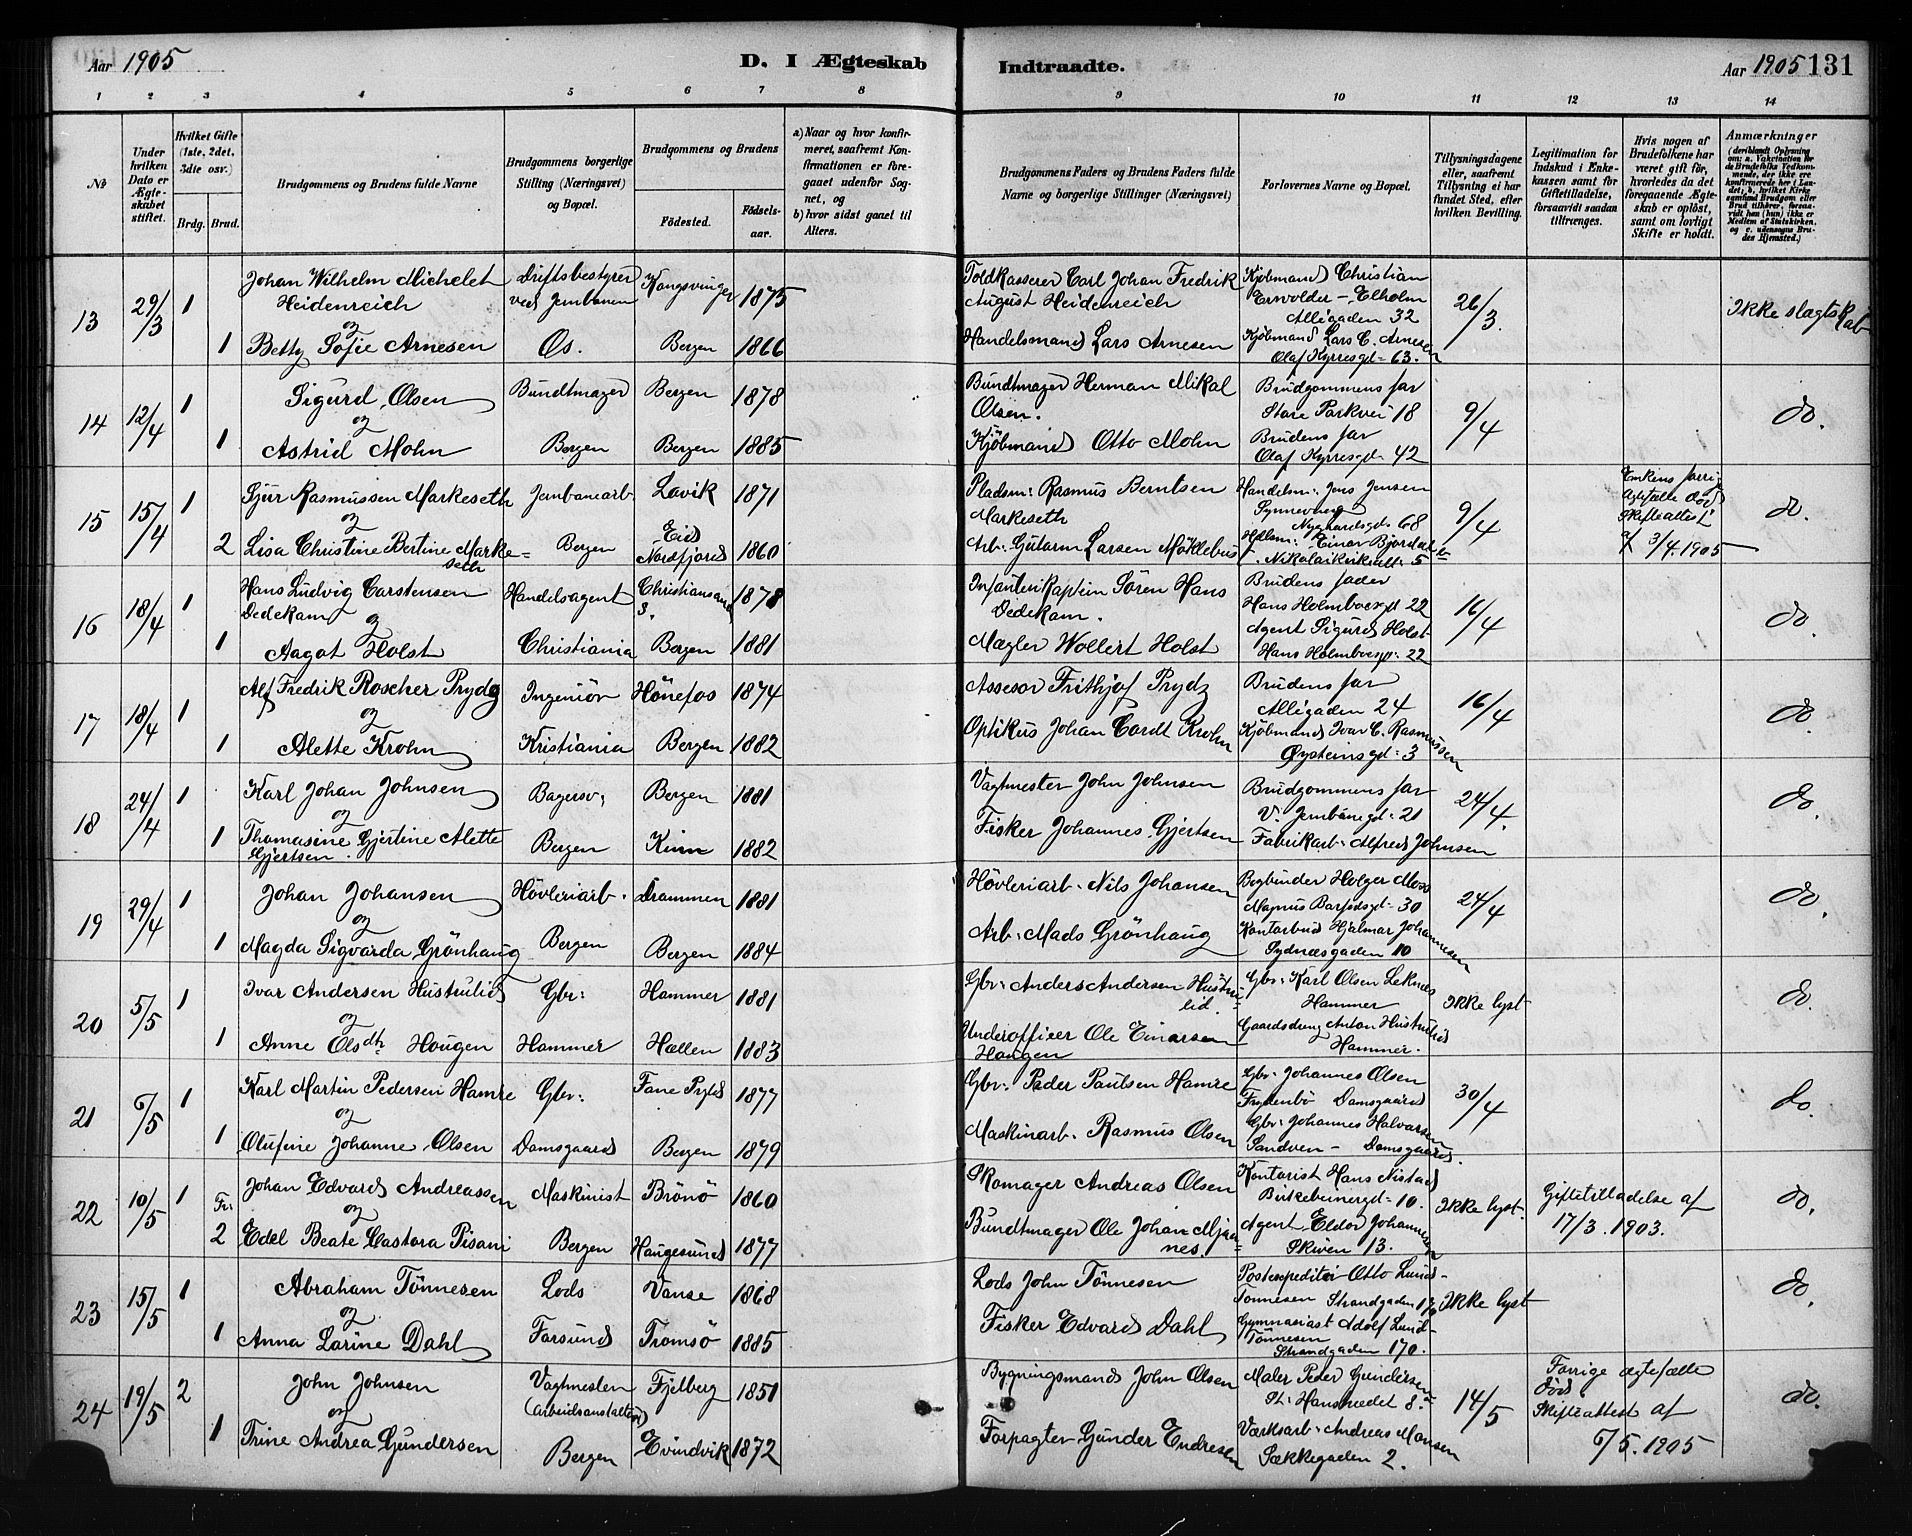 Aar 1905
D. I Ægteskab
Indtraadte.
Aar 1905 131
1 2 3 4 5 6 7 8 9 10 11 12 13 14
№
Under hvilken Dato er Ægteskabet stiftet.
Hvilket Gifte (1ste, 2det, 3die osv.)
Brdg. Brud.
Brudgommens og Brudens fulde Navne
Brudgommens borgerlige Stilling (Næringsvei) og Bopæl.
Brudgommens og Brudens
Fødested.
Fødselsaar.
a) Naar og hvor konfirmeret, saafremt Konfirmationen er foregaaet udenfor Sognet, og
b) hvor sidst gaaet til Alters.
Brudgommens Faders og Brudens Faders fulde Navne og borgerlige Stillinger (Næringsvei)
Forlovernes Navne og Bopæl.
Tillysningsdagene eller, saafremt Tillysning ei har fundet Sted, efter hvilken Bevilling.
Legitimation for Indskud i Enkekassen samt for Giftetilladelse, forsaavidt saadan tiltrænges.
Hvis nogen af Brudefolkene har været gift før, hvorledes da det foregaaende Ægteskab er opløst, samt om lovligt Skifte er holdt.
Anmærkninger (deriblandt Oplysning om: a. Vakcination for de Brudefolks Vedkommende, der ikke ere konfirmerede her i Landet; b. hvilket Kirkesamfund Brudgom eller Brud tilhører, forsaavidt han (hun) ikke er Medlem af Statskirken, og c. udensogns Brudes Hjemsted.)
13 29/3 1 Johan Wilhelm Michelet Heidenreich Driftsbestyrer ved Jernbanen Kongsvinger 1875 Toldkasserer Carl Johan Fredrik August Heidenreich Kjøbmand Christian Elholm Alligaden 32 26/3 Ikke slægtskab
og
1 Betty Sofie Arnesen Os. Bergen 1866 Handelsmand Lars Arnesen Kjøbmand Lars C. Arnesen Olaf Kyrresgd. 63.
14 12/4 1 Sigurd Olsen Bundtmager Bergen 1878 Bundtmager Herman Mikal Olsen. Brudgommens far Store Parkvei 18 9/4 do.
og
1 Astrid Mohn Bergen Bergen 1885 Kjöbmand Otto Mohn Brudens far Olaf Kyrresgd. 42
15 15/4 1 Sjur Rasmussen Markeseth Jernbanearb. Lavik 1871 Pladsm: Rasmus Berntsen Markeseth Handelsm: Jens Jensen Nygaardsgd. 68 9/4 Enkens forrige Ægtefælle død Skifteattest af 3/4.1905 do.
og
2 Lisa Christine Bertine Markeseth Bergen Eid Nordfjord 1860 Arb: Larsen Möklebust Einar Bjordal Nikolaikirkealt: 5
16 18/4 1 Hans Ludvig Carstensen Dedekam Handelsagent Christiansand S. 1878 Infanterikaptein Sören Hans Dedekam. Brudens fader Hans Holmboesgd 22 16/4 do.
og
1 Aagot Holst Christiania Bergen 1881 Mægler Wollert Holst Agent Sigurd Holst Hans Holmboesgd: 22
17 18/4 1 Alf Fredrik Roscher Prydz Ingeniör Hönefos 1874 Assesor Frithjof Prydz Brudens far Alligaden 24 16/4 do.
og
1 Alette Krohn Kristiania Bergen 1882 Optikus Johan Cordt Krohn Kjöbmand Ivar C. Rasmussen Øysteinsgd: 3
18 24/4 1 Karl Johan Johnsen Bagersv: Bergen 1881 Vagtmester John Johnsen Brudgommens far V. Jernbanegd: 21 24/4. do.
og
1 Thomasine Gjertine Alette Gjertsen. Bergen Kinn 1882 Fisker Johannes Gjertsen Fabrikarb. Alfred Johnsen
19 29/4 1 Johan Johansen Hövleriarb. Drammen 1881 Hövleriarb. Nils Johansen Bogbinder Holger Moss Magnus Barfodsgd. 30 24/4 do.
og
1 Magda Sigvarda Grönhaug Bergen Bergen 1884 Arb: Mads Grönhaug Kontorbud Hjalmar Johannesen Sydnæsgaden 10
20 5/5 1 Ivar Andersen Hustrulid Gbr: Hammer 1881 Gbr: Anders Andersen Hustrulid. Gbr: Karl Olsen Leknæs Hammer Ikke lyst do.
og
1 Anne Olsdtr Hougen Hammer Hællen 1883 Underofficer Ole Einarsen Hougen Gaardsdreng Anton Hustrulid Hammer.
21 6/5 1 Karl Martin Pedersen Hamre Gbr: Fane 1877 Gbr: Peder Paulsen Hamre Gbr: Johannes Olsen Frydenbö Damsgaard 30/4 do.
og
1 Olufine Johanne Olsen Damsgaard Bergen 1879 Maskinarb. Rasmus Olsen Gbr: Johannes Halvorsen Sandven - Damsgaard.
22 10/5 1 Johan Edvard Andreassen Maskinist Brönö 1860 Skomager Andreas Olsen Kontorist Hans Nistad Birkebeinergd. 10. Ikke lyst. Giftetilladelse af 17/3.1903. do.
og
2 Edel Beate Castora Pisani Bergen Haugesund 1877 Bundtmager Ole Johan Mjaanes. Agent Eldor Johannesen Skiven 13.
23 15/5 1 Abraham Tönnesen Lods Vanse 1868 Lods John Tönnesen Postexpeditör Otto Lund-Tönnesen Strandgaden 170 Ikke lyst do.
og
1 Anna Larine Dahl Farsund Tromsö 1885 Fisker Edvard Dahl Gymnasiast Adolf Lund-Tönnesen Strandgaden 170.
24 19/5 2 John Johnsen Vagtmester (Arbeidsanstalten) Fjelberg 1851 Bygningsmand John Olsen Maler Peder Gundersen St: Hansstrædet 8. 14/5 Forrige ægtefælle död Skifteattest af 6/5.1905 do.
og
1 Trine Andrea Gundersen Bergen Evindvik 1872 Forpagter Gunder Endresen Værksarb. Andreas Monsen Sækkegaden 2.